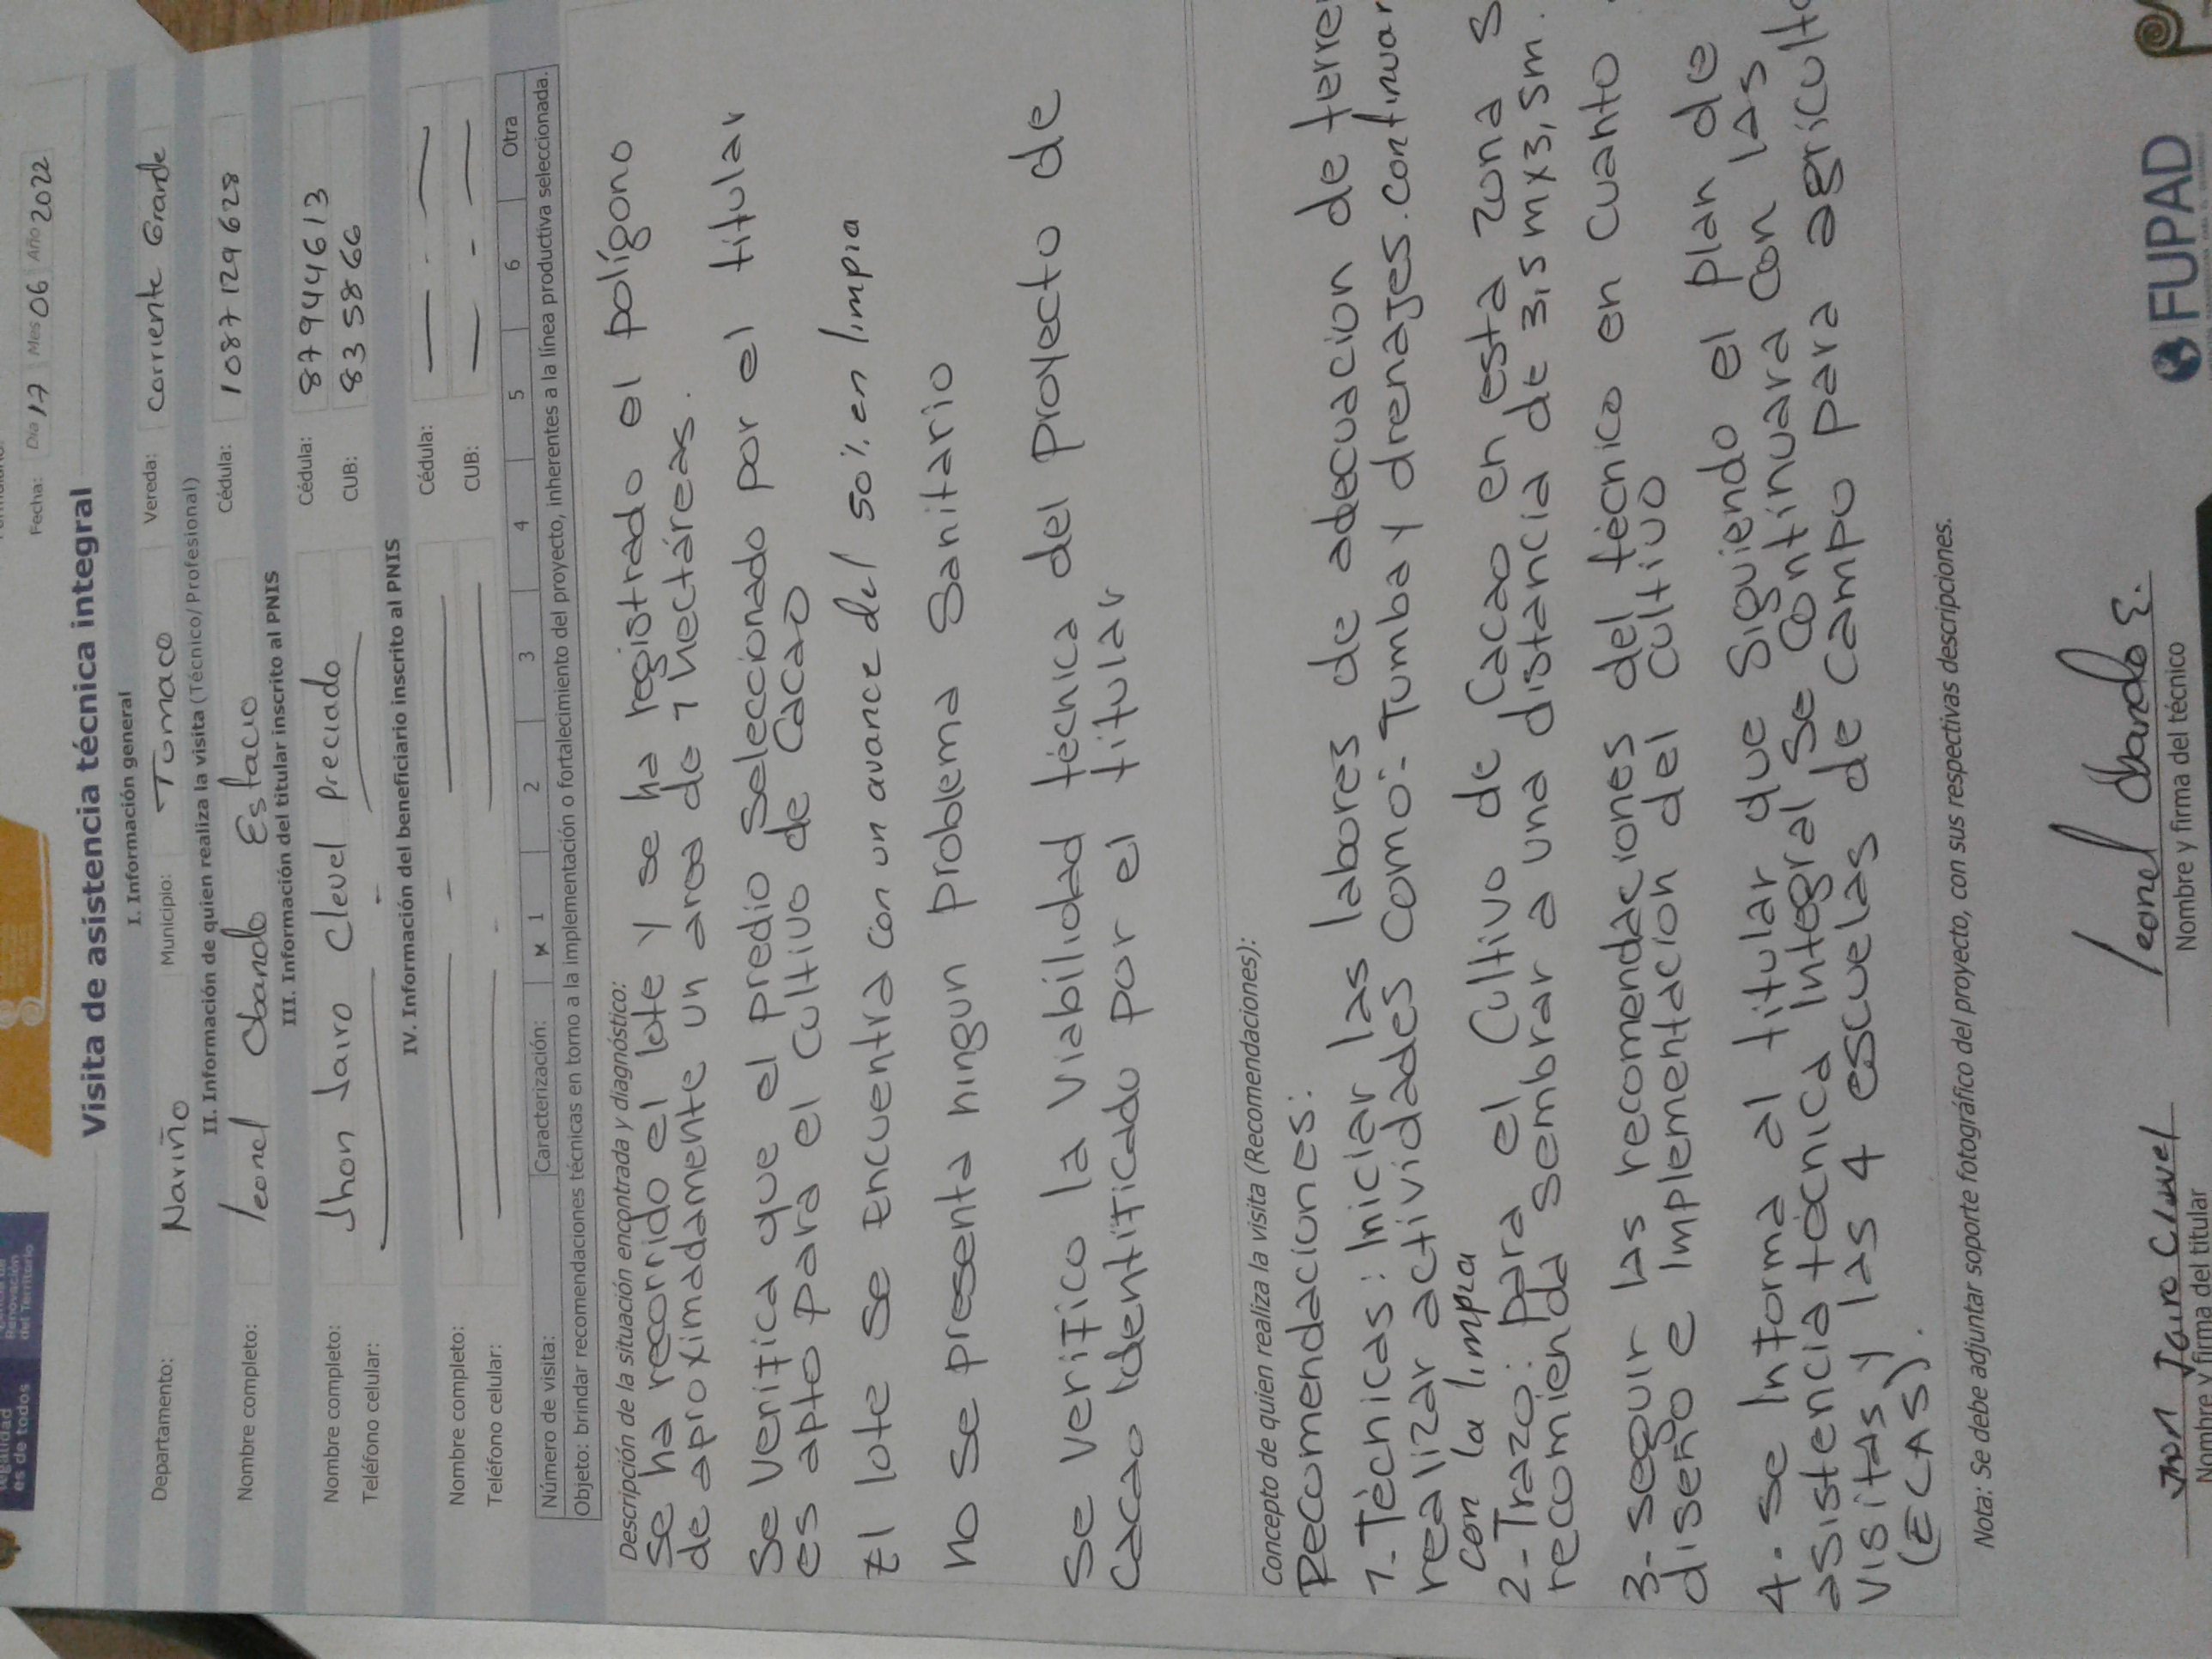 legalidad
es de todos
Renovación
del Territorio
Fecha: Día 17 Mes 06 Año 2022
Visita de asistencia técnica integral
I. Información general
Departamento: Nariño Municipio: Tumaco Vereda: Corriente Grande
II. Información de quien realiza la visita (Técnico/ Profesional)
Nombre completo: leonel Obando Estacio Cédula: 1087129628
III. Información del titular inscrito al PNIS
Nombre completo: Jhon Jairo Clevel Preciado Cédula: 87944613
Teléfono celular: CUB: 8358866
IV. Información del beneficiario inscrito al PNIS
Nombre completo: Cédula:
Teléfono celular: CUB:
Número de visita: Caracterización: x 1 2 3 4 5 6 Otra
Objeto: brindar recomendaciones técnicas en torno a la implementación o fortalecimiento del proyecto, inherentes a la línea productiva seleccionada.
Descripción de la situación encontrada y diagnóstico:
Se ha recorrido el lote y se ha registrado el polígono
de aproximadamente un area de 1 hectáreas.
Se verifica que el predio Seleccionado por el titular
es apto para el cultivo de Cacao
El lote se Encuentra con un avance del 50% en limpia
No se presenta ningun problema Sanitario
Se verifico la viabilidad técnica del proyecto de
Cacao identificado por el titular
Concepto de quien realiza la visita (Recomendaciones):
Recomendaciones:
1-Técnicas: Iniciar las labores de adecuacion de
realizar actividades como:- Tumba y drenajes. continuar
con la limpia
2-Trazo: para el Cultivo de Cacao en esta zona
recomienda sembrar a una distancia de 3,5mx3,5m.
3-seguir las recomendaciones del técnico en cuanto
diseño e implementación del cultivo
4. Se informa al titular que Siguiendo el plan de
asistencia técnica integral Se Continuara con las
visitas y las 4 escuelas de campo para
(ECAS).
Nota: Se debe adjuntar soporte fotográfico del proyecto, con sus respectivas descripciones.
Jhon Jairo Cluvel leonel Obando E.
Nombre y firma del titular Nombre y firma del técnico
FUPAD